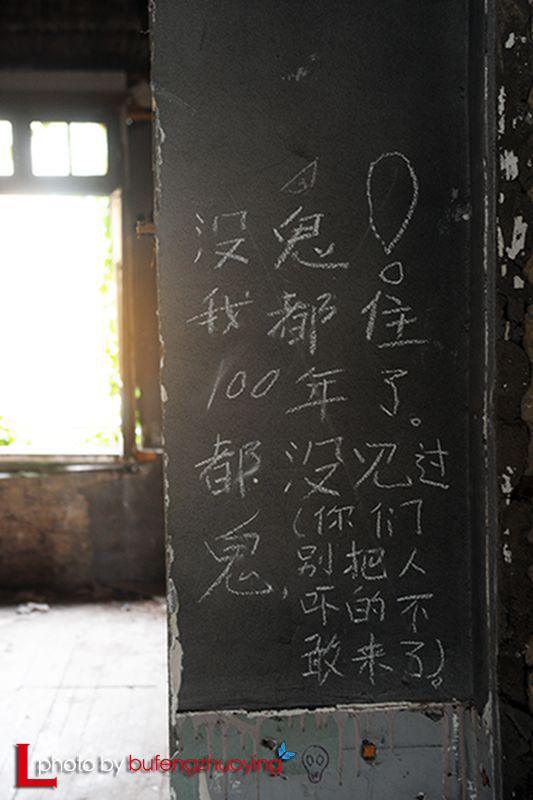 没鬼！
我都住
100年了。
都没见过
鬼，
（你们
别把人
吓的不
敢来了）。
L photo by bufengzhuoying